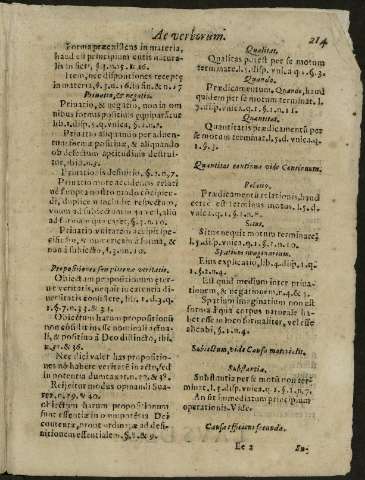 Ac verborum. 214
Forma præexistens in materia,
haud est principium entis natura-
lis in fieri, §.3.n.15. & 16.
Item, nec dispositiones receptę
in materia, §.3.n.16. in fin. & n.17
Priuatio, & negatio.
Priuatio, & negatio, non in om
nibus formis positiuis æquiparātur
lib.1.disp.5.q.vnica, §.1.n.2.
Priuatio aliquando per
formæ positiuæ, & aliquando
ob defectum aptitudinis destrui-
tur, ibid.n.3.
Priuatio is definitio, §.2.n.7.
Priuatio
duplicē includit respectum,
vnum ad subiectum in quo est, aliū
ad formam qua caret, §.3.n.10.
Priuatio
&
& subiecto, §.3.n.10.
Propositiones sempiternæ veritatis.
Obiectum propositionum æter-
næ veritatis, nequit in æterna di-
uinitatis consistere, lib.1.d.3.q.
1.§.7.n.33. & 31.
Obiectum harum propositionū
non cōsistit in esse nominali actua-
li, & positiuo à Deo distincto, ibi,
n.35. & 36.
Nec dici valet has propositio-
nes nō habere veritatē in actu, sed
in potentia dumtaxat, n.37. & 38.
Reijcitur modus opinandi Sua-
rez, n.39. & 40.
Obiectum harum propositionum
sunt essentiæ in omnipotētia Dei
contentæ, prout ordinatæ ad defi-
nitionem essentialem, §.8. & 9.
Qualitas.
Qualitas potest per se motum
terminare, l.5.disp.vnica q.1.§.3.
Quando.
Prædicamentum, Quando, haud
quidem per se motum terminat. l.
5.disp.vnica.q.1.§.1.n.11.
Quantitas.
Quantitatis prædicamentū per
se motum terminat. l.5.d.vnica.q.
1.§.3.
Quantitas continua vide Continuum.
Relatio.
Prædicamentū relationis, haud
est terminus motus. l.5.d.
vnic.q.1.§.1.n.8.
Situs.
Situs nequit motum terminare,
l.5.disp.vnica.q.1.§.1.n.10.
Spatium imaginarium.
Eius explicatio, lib.4.disp.1.q.
1.§.1.n.4.
Est quid medium inter priua-
tionem, & negationem, n.4. & 5.
Spatium imaginarium non est
forma à qua corpus naturale ha-
bet esse in loco formaliter, vel esse
alicubi, §.1.n.4.
Subiectum, vide Causa materialis.
Substantia.
Substantia per se motū non ter-
minat, l.5.disp.vnica.q.1.§.1.n.7.
An sit immediatum principium
operationis. Vide.
Causa efficiens secunda.
Ee 2 Su-